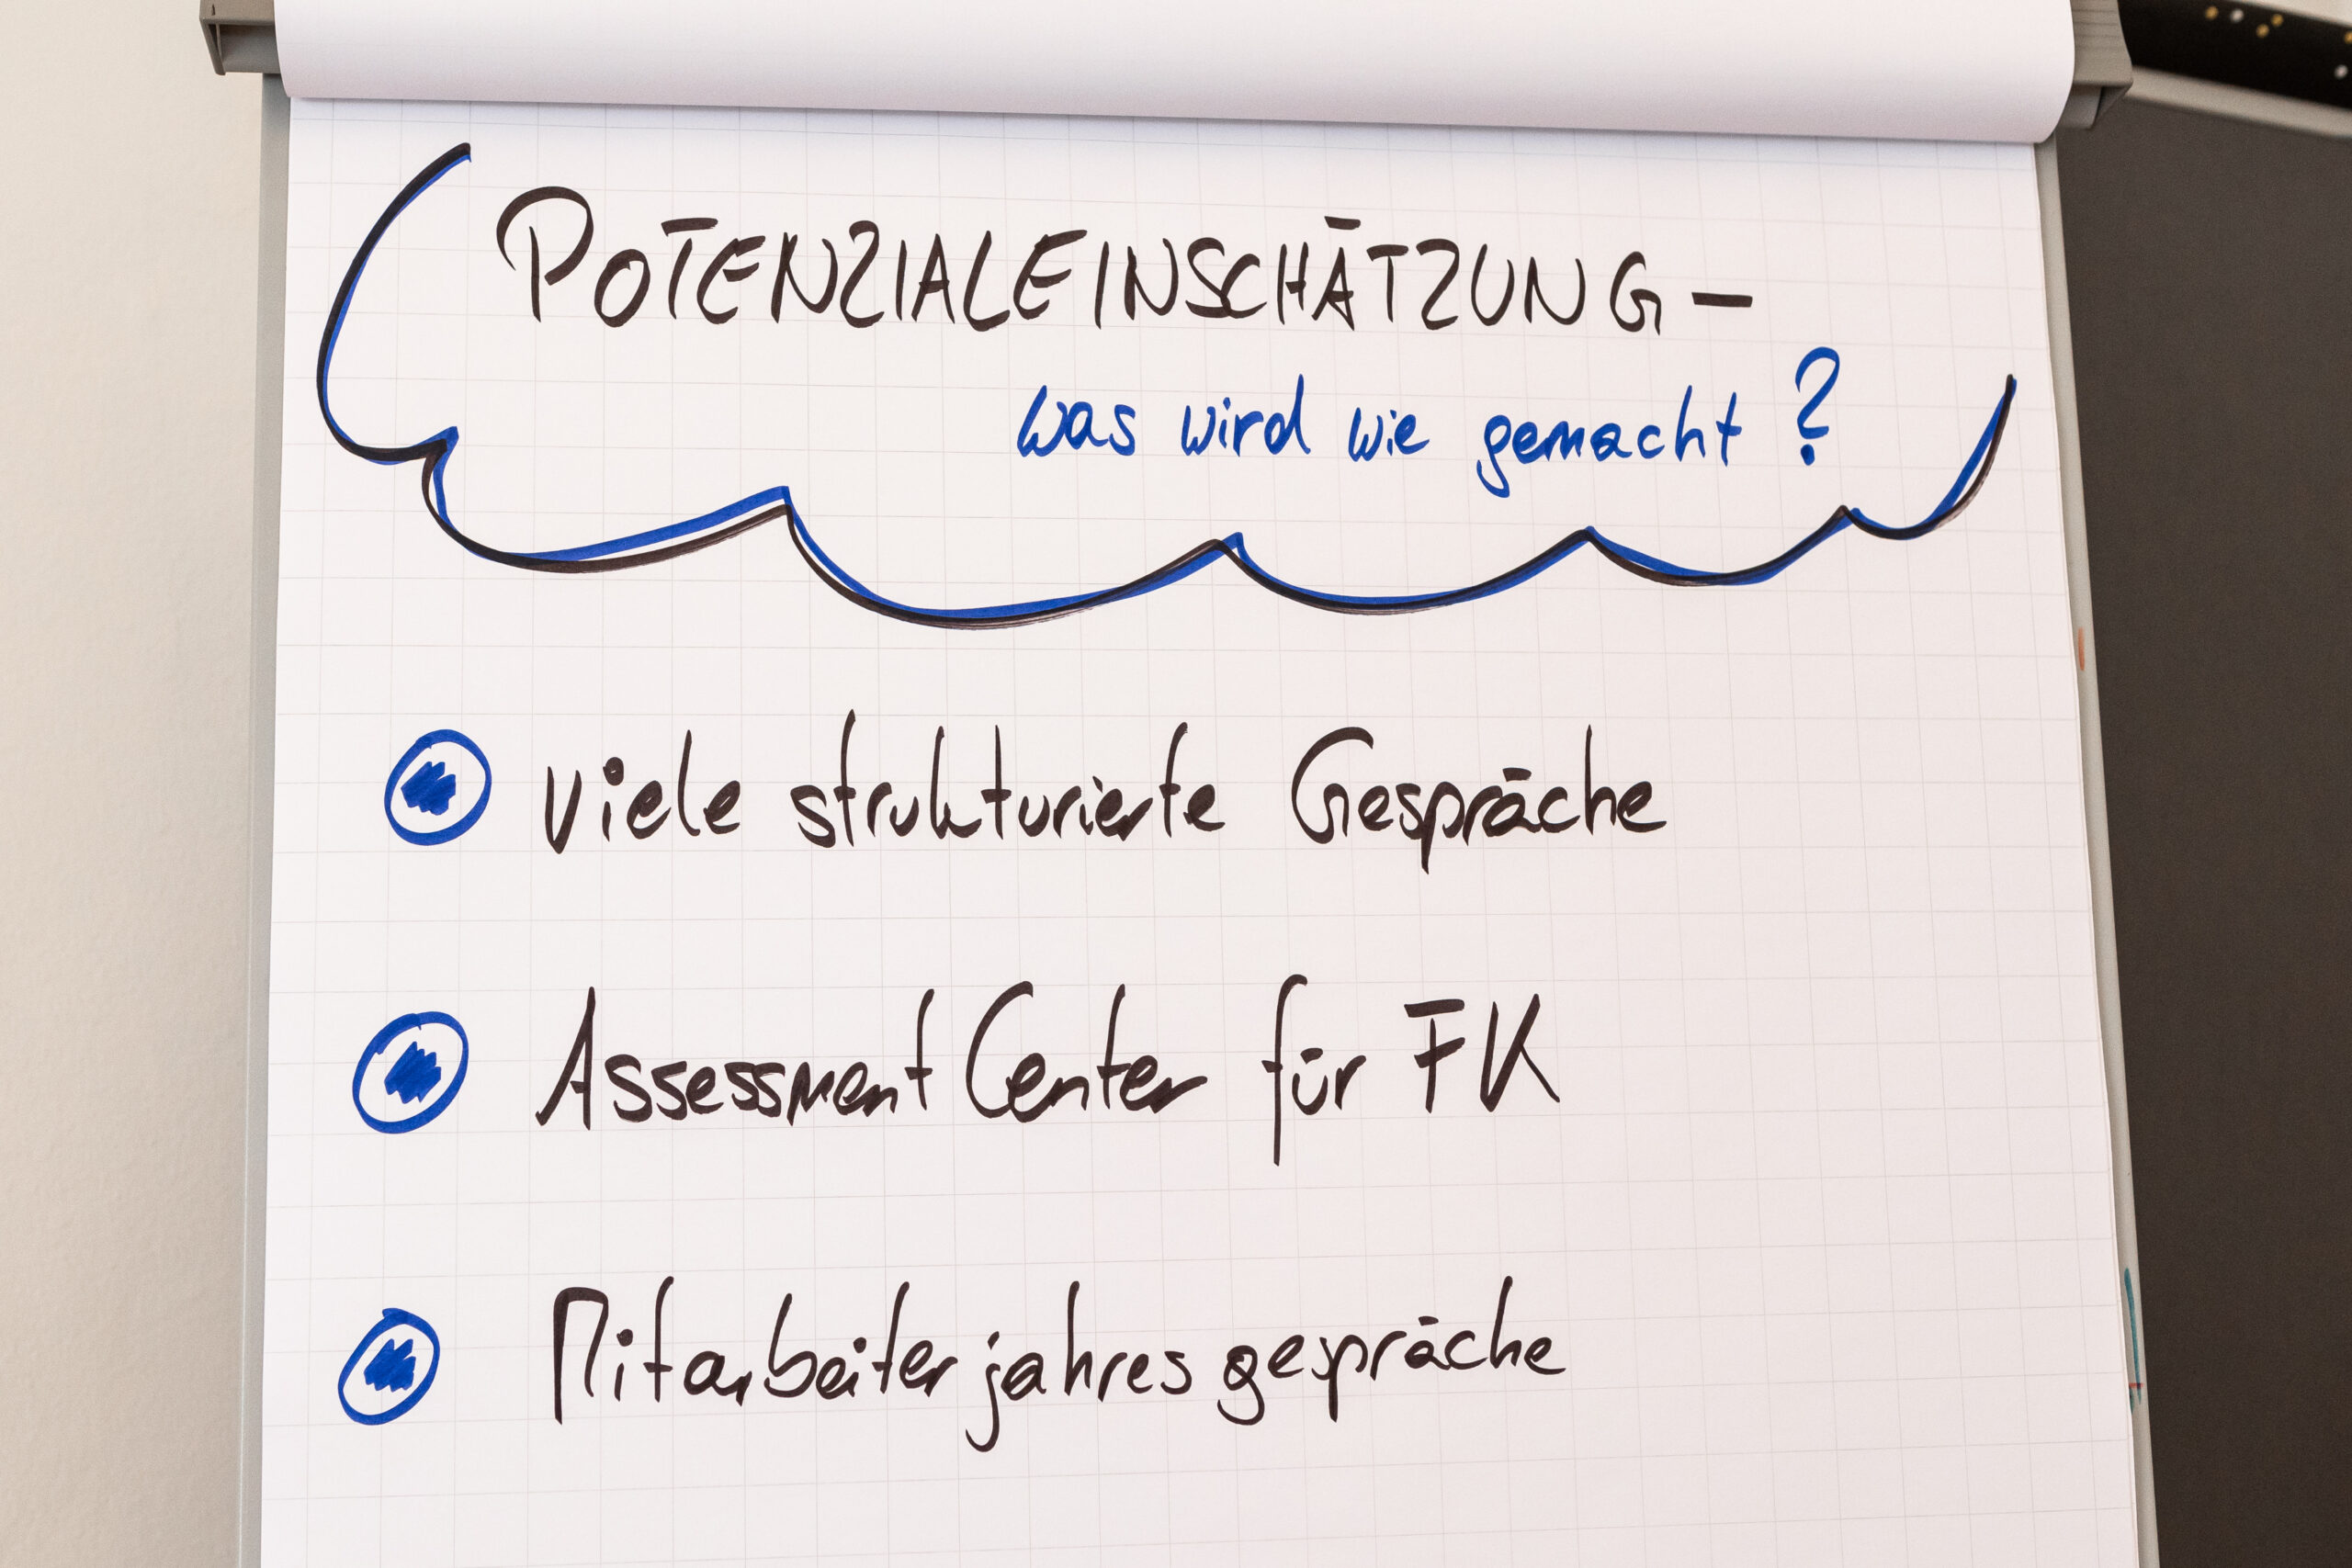 POTENZIALEINSCHÄTZUNG –
was wird wie gemacht?
viele strukturierte Gespräche
Assessment Center für FK
Mitarbeiterjahresgespräche